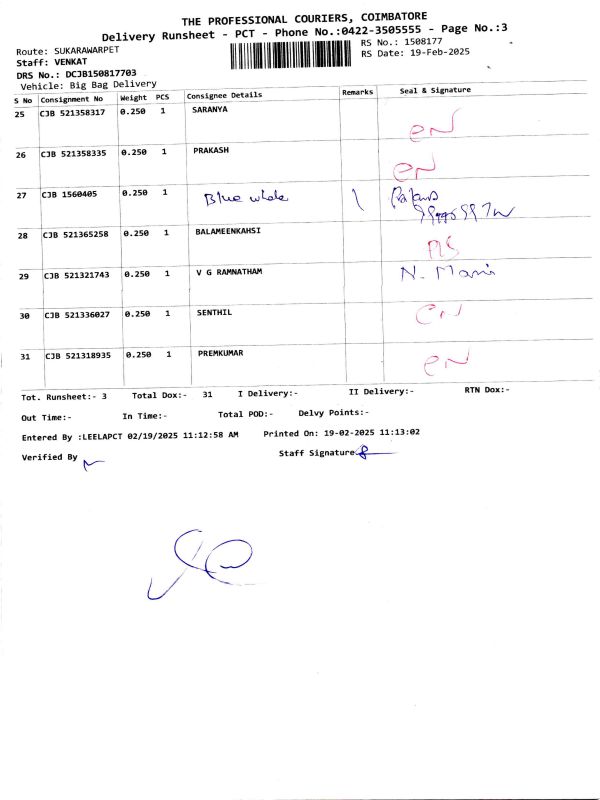 THE PROFESSIONAL COURIERS, COIMBATORE
Delivery Runsheet - PCT - Phone No.:0422-3505555 - Page No.:3
Route: SUKARAWARPET
RS No.: 1508177
Staff: VENKAT
RS Date: 19-Feb-2025
DRS No.: DCJB150817703
Vehicle: Big Bag Delivery
S No Consignment No Weight PCS Consignee Details Remarks Seal & Signature
25 CJB 521358317 0.250 1 SARANYA EN
26 CJB 521358335 0.250 1 PRAKASH EN
27 CJB 1560405 0.250 1 Blue whale
28 CJB 521365258 0.250 1 BALAMEENKAHSI
29 CJB 521321743 0.250 1 V G RAMNATHAM N. Mani
30 CJB 521336027 0.250 1 SENTHIL EN
31 CJB 521318935 0.250 1 PREMKUMAR EN
Tot. Runsheet:- 3 Total Dox:- 31 I Delivery:- II Delivery:- RTN Dox:-
Out Time:- In Time:- Total POD:- Delvy Points:-
Entered By :LEELAPCT 02/19/2025 11:12:58 AM Printed On: 19-02-2025 11:13:02
Verified By Staff Signature